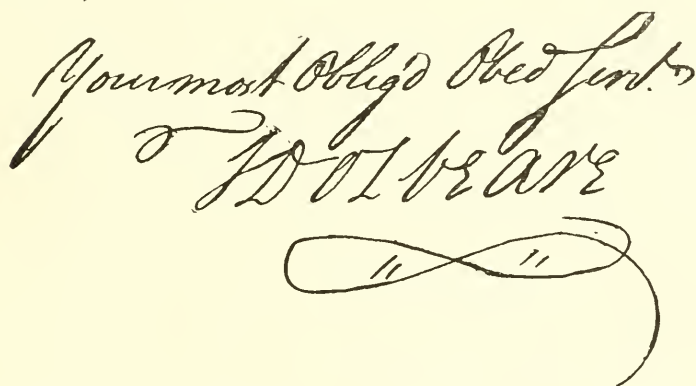 Your most Oblig'd Obed Servt.
J DOLBEARE